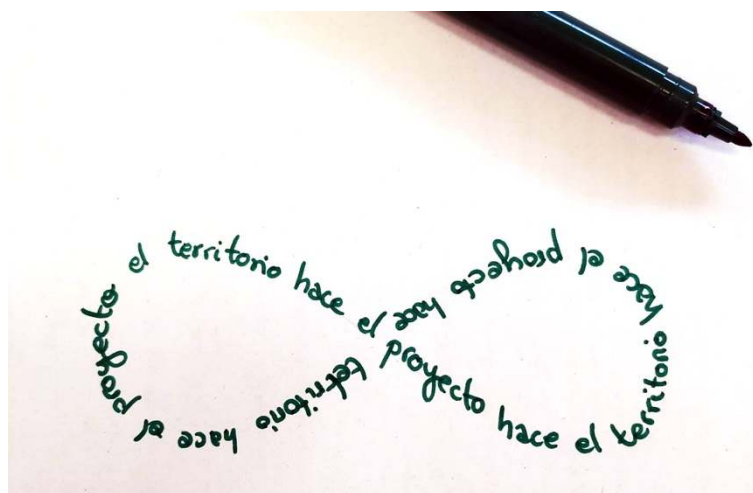 el territorio hace el proyecto hace el territorio hace el proyecto hace territorio hace el proyecto